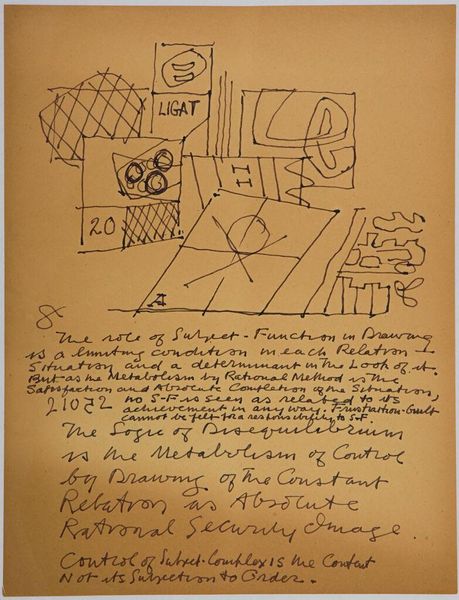 LIGAT
20
The role of Subject-Function in Drawing
is a limiting condition in each Relation-
Situation and a determinant in the Look of it.
But as the Metabolism by Rational Method is the
Satisfaction and Absolute Completion of the Situation,
no S-F is seen as related to its
achievement in any way. Frustration-Guilt
cannot be felt for a responsibility to S-F.
The Logic of Disequilibrium
is the Metabolism of Control
by Drawing of the Constant
Relation as Absolute
Rational Security Image.
Control of Subject-Complex is the Content
Not its Subjection to Order.